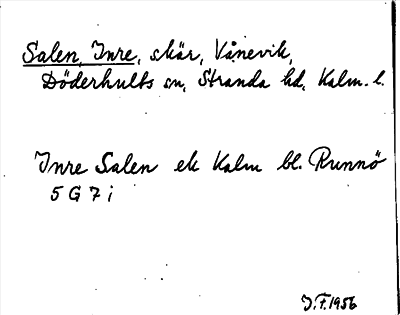 Salen, Inre, skär, Vånevik,
Döderhults sn, Stranda hd, Kalm. l.
Inre Salen ek Kalm bl. Runnö
5 G 7 i
J.F. 1956